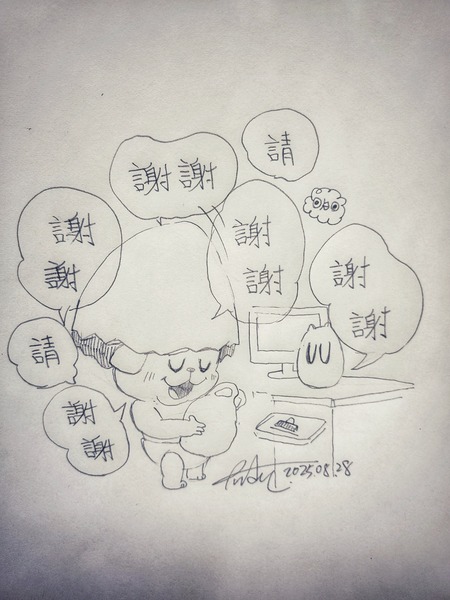 請
謝謝
謝
謝
謝
謝
謝
謝
請
謝
謝
2025.08.28